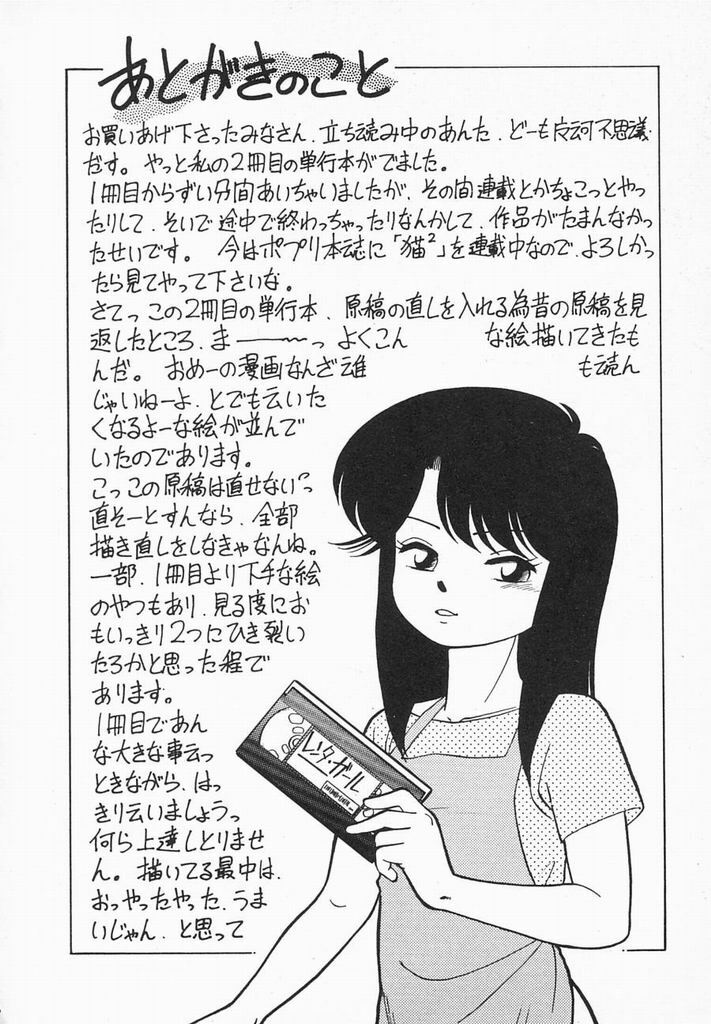 あとがきのこと
お買いあげ下さったみなさん、立ち読み中のあんた、どーも友河不思議
だす。やっと私の2冊目の単行本がでました。
1冊目からずい分間あいちゃいましたが、その間連載とかちょこっとやっ
たりして、そいで途中で終わっちゃったりなんかして、作品がたまんなかっ
たせいです。今はポプリ本誌に「猫²」を連載中なので、よろしかっ
たら見てやって下さいな。
さてっこの2冊目の単行本、原稿の直しを入れる為昔の原稿を見
返したところ、ま―――〜っ よくこん な絵描いてきたも
んだ。おめーの漫画なんざ誰 も読ん
じゃいねーよ、とでも云いた
くなるよーな絵が並んで
いたのであります。
こっこの原稿は直せないっ
直そーとすんなら、全部
描き直しをしなきゃなんね。
一部、1冊目より下手な絵
のやつもあり、見る度にお
もいっきり2つにひき裂い
たろかと思った程で
あります。
1冊目であん
な大きな事云っ
ときながら、はっ
きり云いましょうっ
何ら上達しとりませ
ん。描いてる最中は、
おっやったやった、うま
いじゃん、と思って
レンタ・ガール